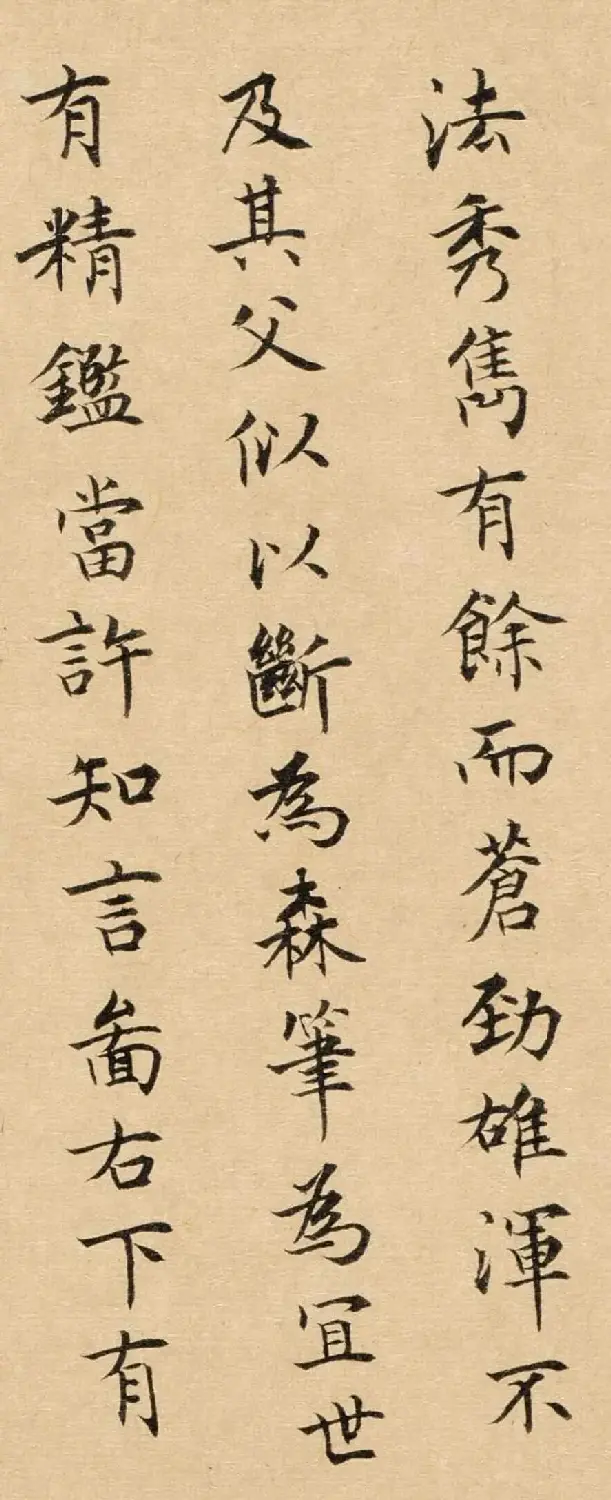 法秀雋有餘而蒼勁雄渾不
及其父似以斷為森筆為冝世
有精鑑當許知言畣右下有